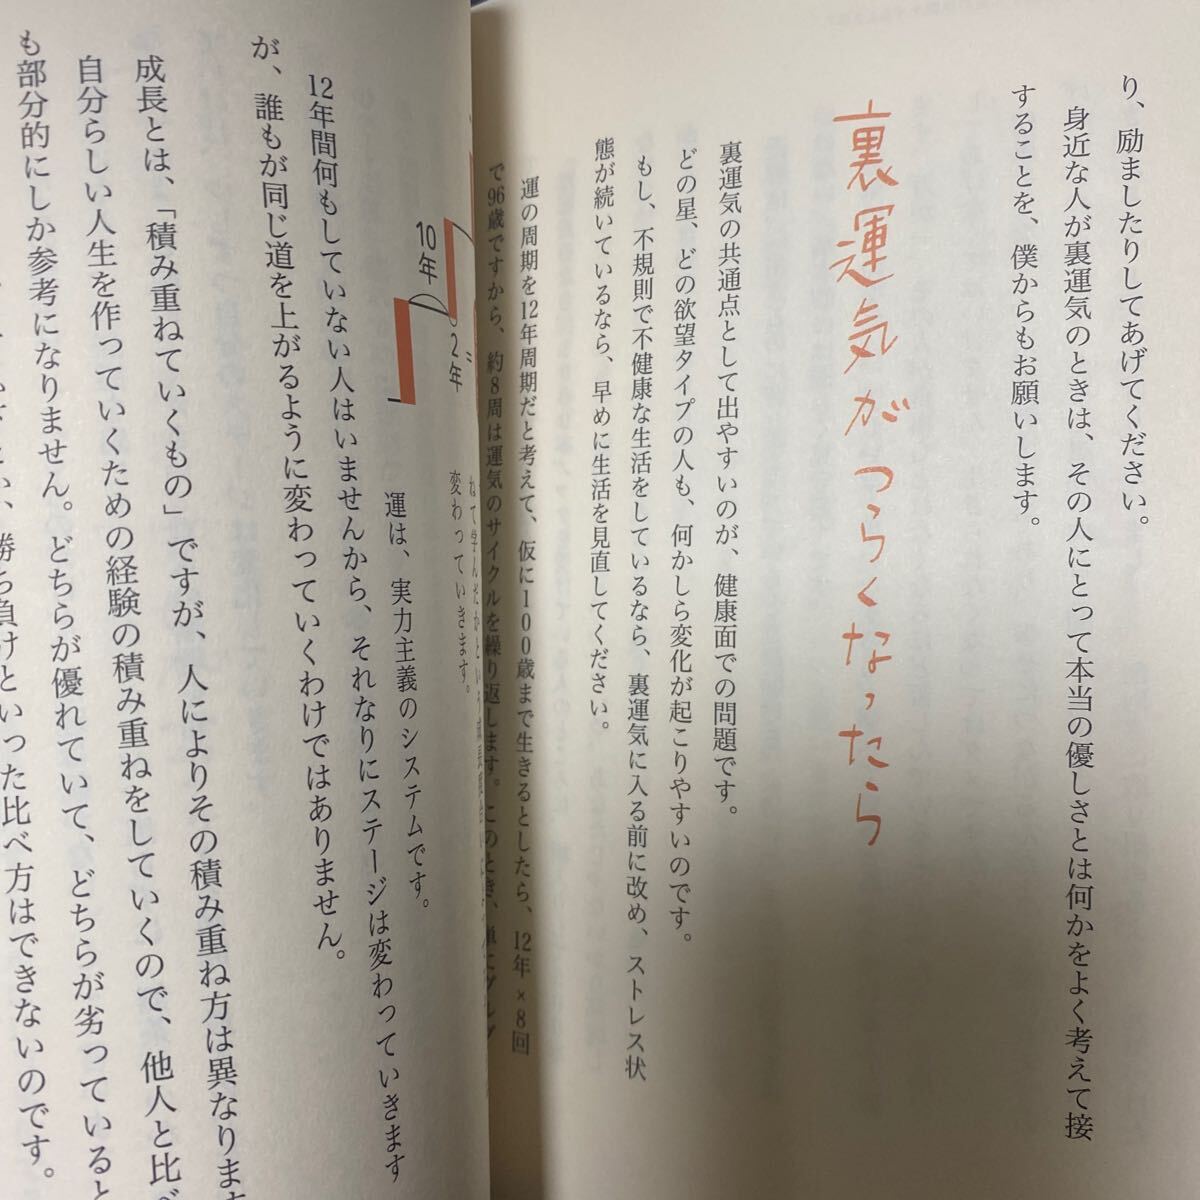 り、励ましたりしてあげてください。
身近な人が裏運気のときは、その人にとって本当の優しさとは何かをよく考えて接
することを、僕からもお願いします。
裏運気がつらくなったら
裏運気の共通点として出やすいのが、健康面での問題です。
どの星、どの欲望タイプの人も、何かしら変化が起こりやすいのです。
もし、不規則で不健康な生活をしているなら、裏運気に入る前に改め、ストレス状
態が続いているなら、早めに生活を見直してください。
運の周期を12年周期だと考えて、仮に100歳まで生きるとしたら、12年×8回
で96歳ですから、約8周は運気のサイクルを繰り返します。このとき、
10年
2年
変わっていきます。
運は、実力主義のシステムです。
12年間何もしていない人はいませんから、それなりにステージは変わっていきます
が、誰もが同じ道を上がるように変わっていくわけではありません。
成長とは、「積み重ねていくもの」ですが、人によりその積み重ね方は異なります
自分らしい人生を作っていくための経験の積み重ねをしていくので、他人と比べ
も部分的にしか参考になりません。どちらが優れていて、どちらが劣っていると
勝ち負けといった比べ方はできないのです。